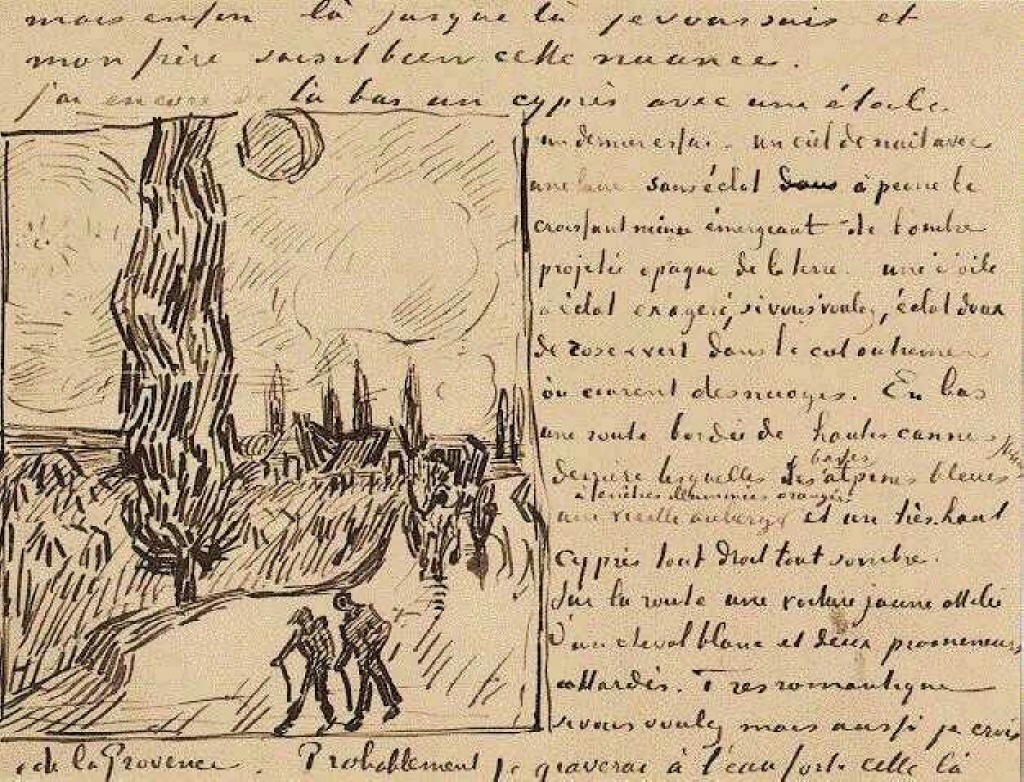 mais enfin là jusque là je vous suis et
mon frère saisit bien cette nuance.
j'ai encore de là bas un cyprès avec une étoile
un dernier essai – un ciel de nuit avec
une lune sans éclat à peine le
croissant mince émergeant de l'ombre
projetée opaque de la terre – une étoile
à éclat exagéré, si vous voulez, éclat doux
de rose & vert dans le ciel outremer
où courent des nuages. En bas
une route bordée de hautes cannes
derrière lesquelles les basses alpines bleues
à fenêtres illuminées orangées
une vieille auberge et un très haut
cyprès tout droit tout sombre.
Sur la route une voiture jaune attelée
d'un cheval blanc et deux promeneurs
attardés. Très romantique
si vous voulez mais aussi je crois
de la Provence. Probablement je graverai à l'eau forte celle là